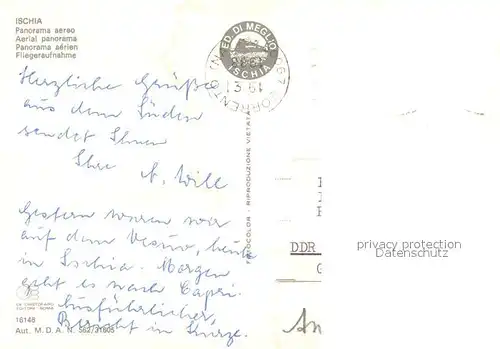 ISCHIA
Panorama aereo
Aerial panorama
Panorama aérien
Fliegeraufnahme
ED. DI MEGLIO
ISCHIA
Herzliche Grüße
aus dem Süden
sendet Ihnen
Ihre A. Will
Gestern waren wir
auf dem Vesuv, heute
in Ischia. Morgen
geht es nach Capri.
Ausführlicher
Bericht in Kürze.
16146
Aut. M. D. A. N.
FOTOCOLOR - RIPRODUZIONE VIETATA
DDR
privacy protection
Datenschutz
An